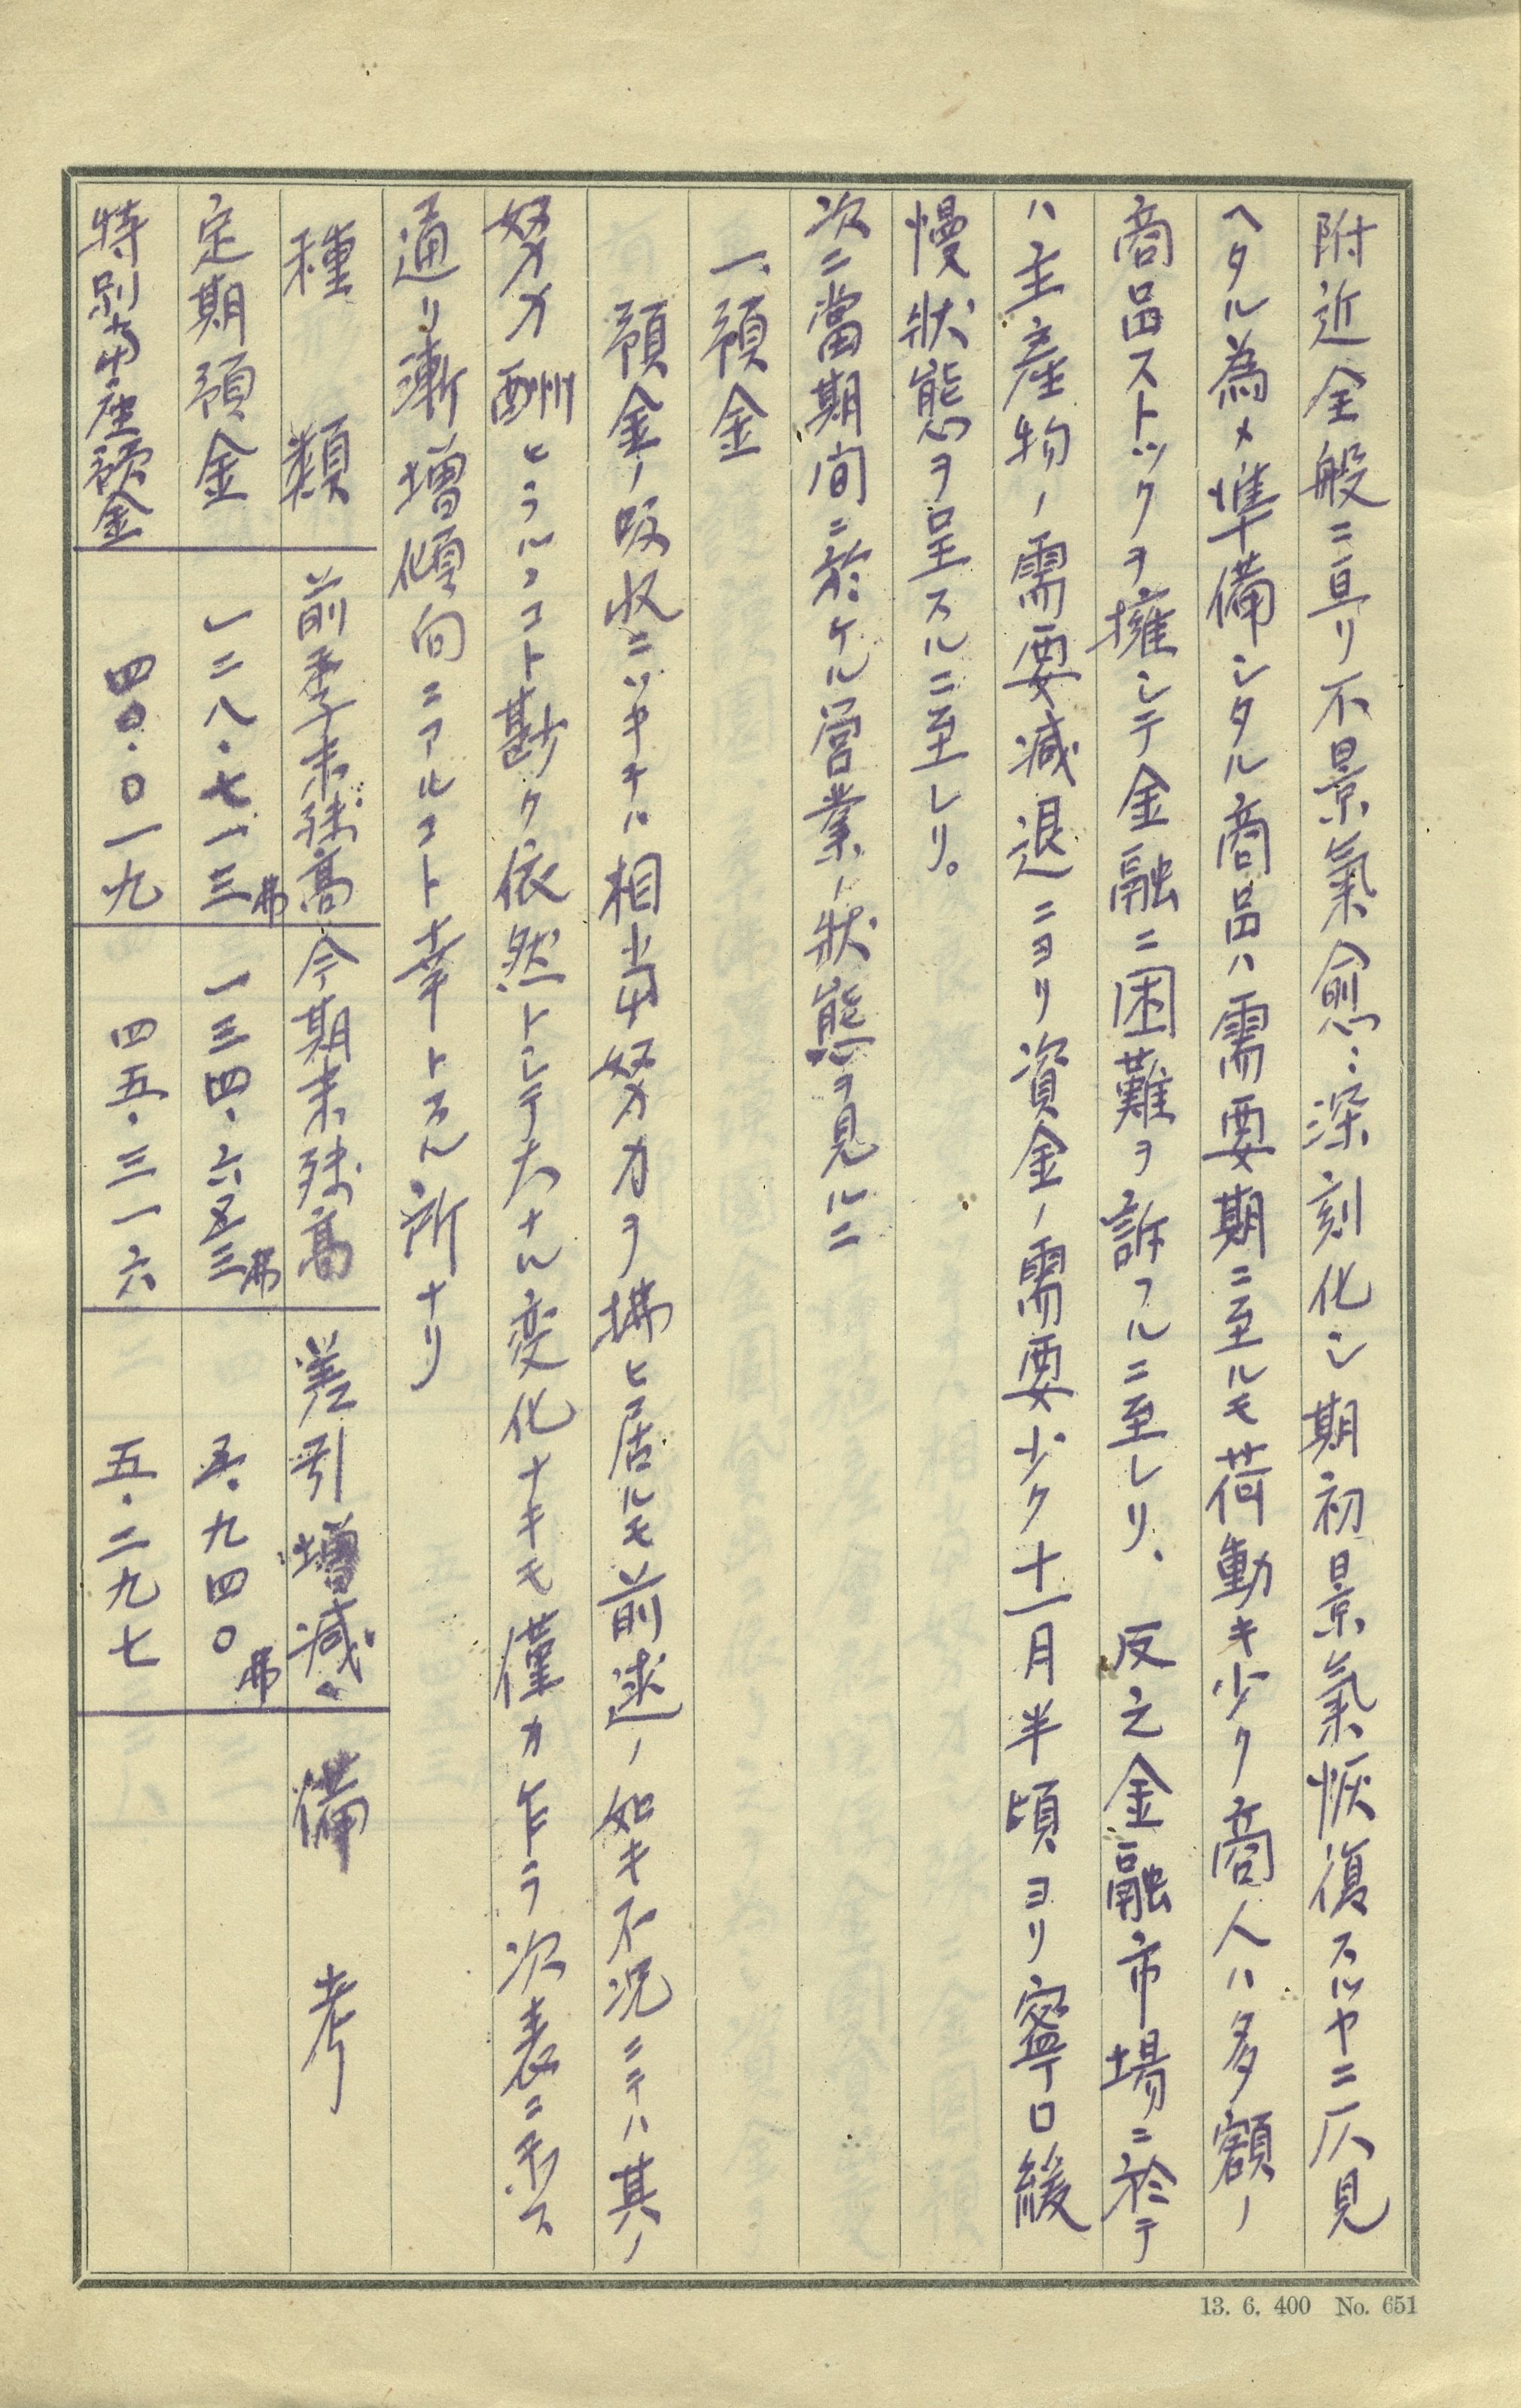 附近全般ニ亘リ不景氣愈〻深刻化シ期初景氣恢復スルヤニ仄見
ヘタル為メ準備シタル商品ハ需要期ニ至ルモ荷動キ少ク商人ハ多額ノ
商品ストックヲ擁シテ金融ニ困難ヲ訴フルニ至レリ、反之金融市場ニ於テ
ハ主産物ノ需要減退ニヨリ資金ノ需要少ク十一月半頃ヨリ寧ロ緩
慢狀態ヲ呈スルニ至レリ。
次ニ當期間ニ於ケル営業ノ狀態ヲ見ルニ
一、預金
預金ノ吸収ニツキテハ相当努力ヲ拂ヒ居ルモ前述ノ如キ不況ニテハ其ノ
努力酬ヒラルヽコト尠ク依然トシテ大ナル変化ナキモ僅カ乍ラ次表ニ示ス
通リ漸増傾向ニアルコト幸トスル所ナリ
種類 前季末残高 今期末残高 差引増減 備考
定期預金 一二八・七一三弗 一三四・六五三弗 五・九四〇弗
特別当座預金 四〇・〇一九 四五・三一六 五・二九七
13. 6. 400 No. 651